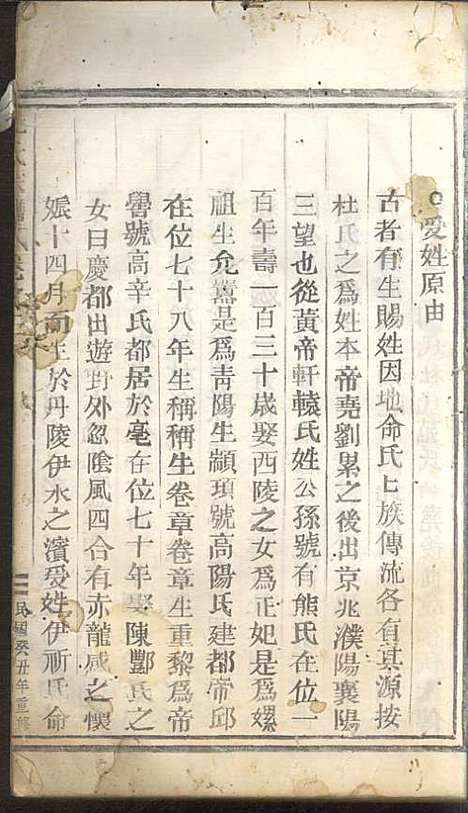 ○受姓原由
古者有生賜姓因地命氏上族傳流各有其源按
杜氏之爲姓本帝堯劉累之後出京兆濮陽襄陽
三望也從黃帝軒轅氏姓公孫號有熊氏在位一
百年壽一百三十歲娶西陵之女爲正妃是爲嫘
祖生允囂是爲青陽生顓頊號高陽氏建都帝邱
在位七十八年生稱稱生卷章卷章生重黎爲帝
嚳號高辛氏都居於亳在位七十年娶陳酆氏之
女曰慶都出遊野外忽陰風四合有赤龍感之懷
娠十四月而生於丹陵伊水之濱受姓伊祈氏命
民國癸丑年重修